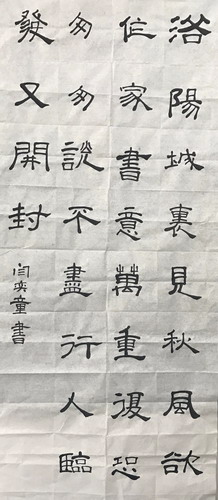 洛陽城裏見秋風欲
作家書意萬重復恐
匆匆說不盡行人臨
發又開封
闫奕童書